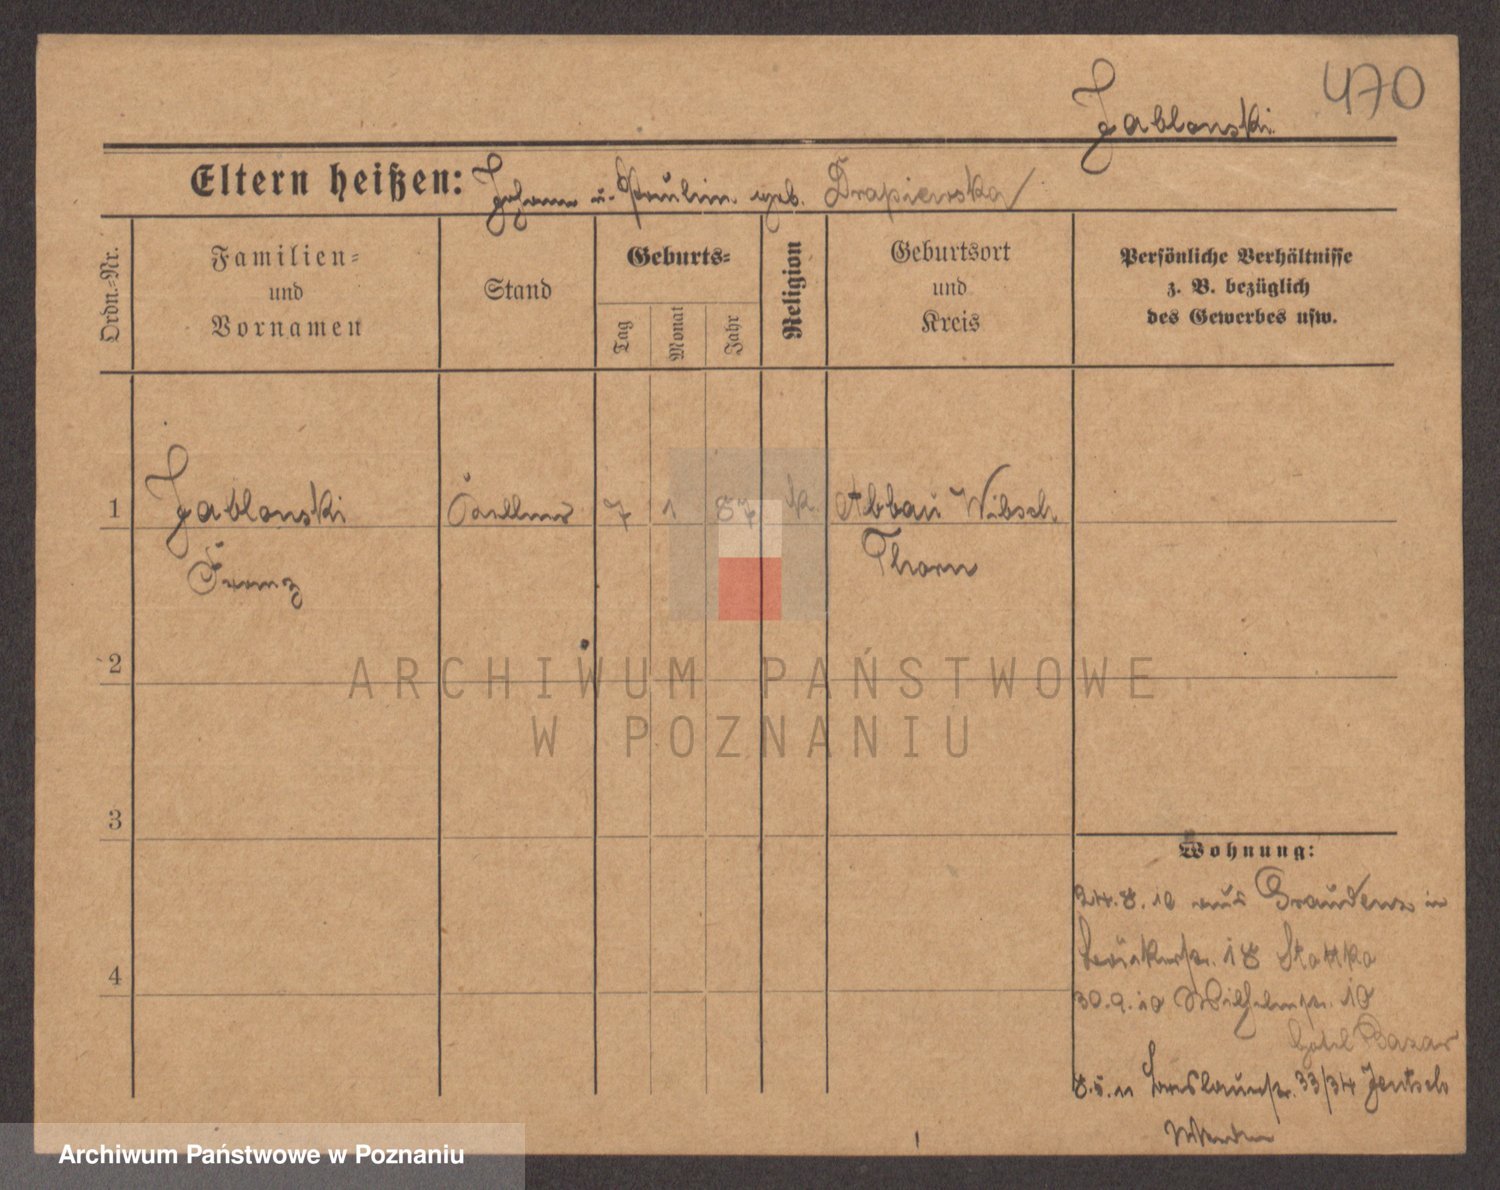 470
Jablonski
Eltern heißen: Johann u. Paulin. geb. Drapiewska
Ordn.-Nr.
Familien-
und
Vornamen
Stand
Geburts-
Tag
Monat
Jahr
Religion
Geburtsort
und
Kreis
Persönliche Verhältnisse
z. B. bezüglich
des Gewerbes usw.
1 Jablonski 7 1 87 k. Abbau Wibsch
Franz Thorn
2
3
4
Wohnung:
24.8.10 aus Graudenz in
18 Stattka
30.9.10 Wilhelmstr. 10
Hotel Bazar
8.5.11 Breslauerstr. 33/34 Jentsch
ARCHIWUM PAŃSTWOWE
W POZNANIU
Archiwum Państwowe w Poznaniu